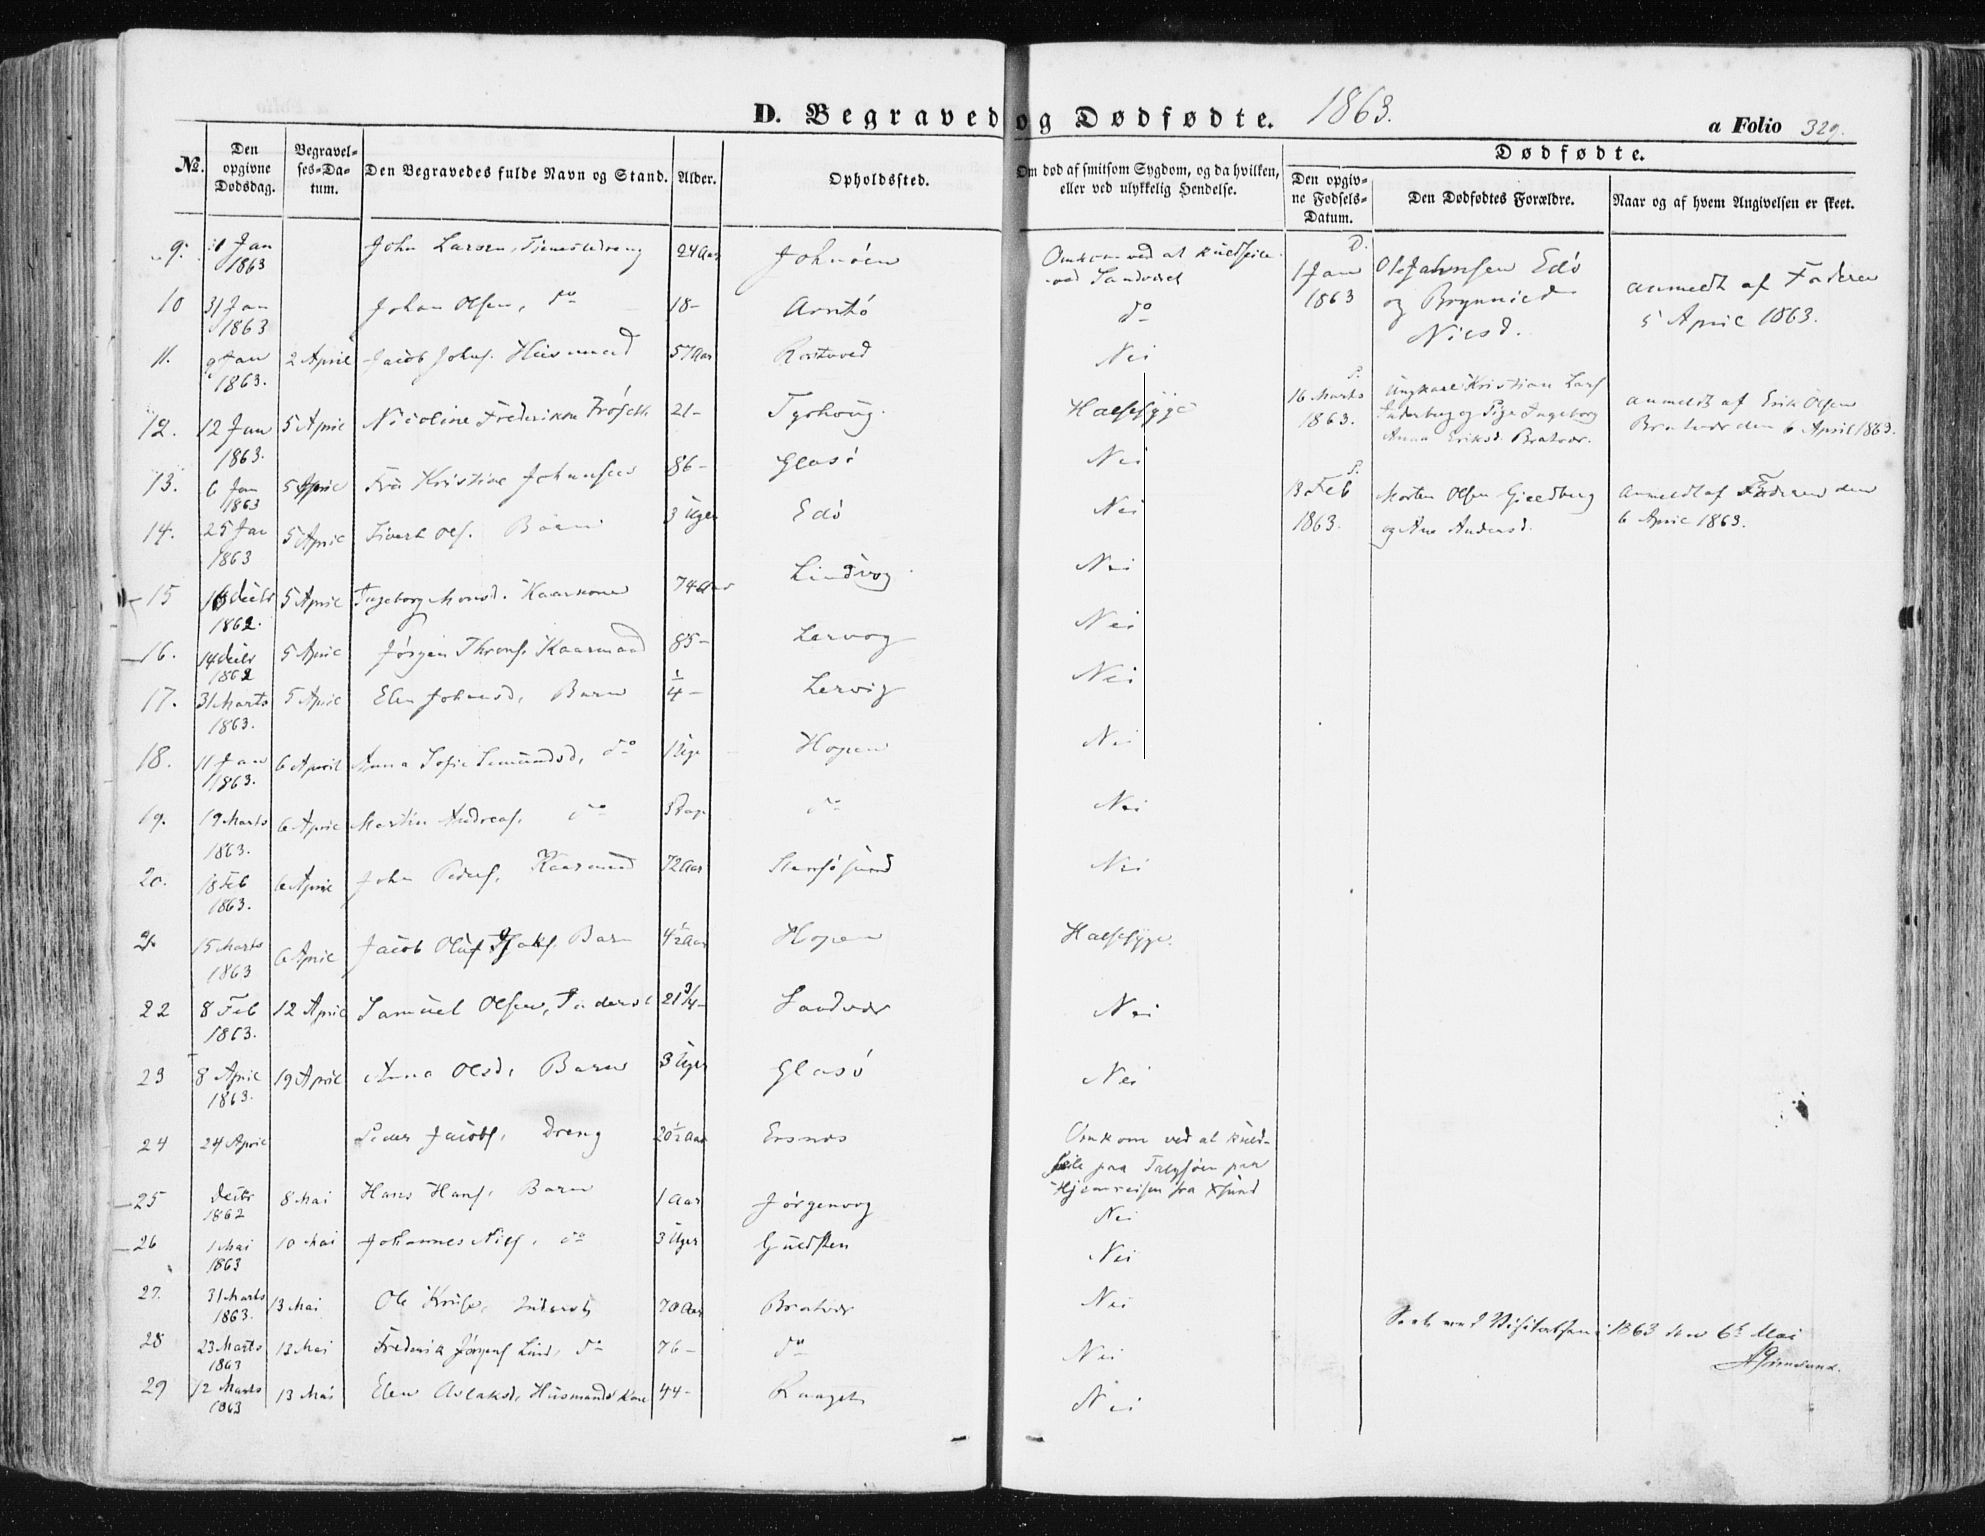 D. Begraved og Dødfødte. 1863.
a Folio 329.
No. Den opgivne Dødsdag. Begravelses-Datum. Den Begravedes fulde Navn og Stand. Alder. Opholdssted. Om død af smitsom Sygdom, og da hvilken, eller ved ulykkelig Hendelse.
Dødfødte.
Den opgivne Fødsels-Datum. Den Dødfødtes Forældre. Naar og af hvem Angivelsen er skeet.
9. Jan 1863 John Larsen, Tjenestedreng 24 Aar Johnöen Omkom ved at kuldseile ved Sandværet
10 31 Jan 1863 Johan Olsen, do 18- Arntö do
11. Jan 1863. 2 April Jacob Johns. Huusmand 57 Aar Rostavod Nei
12. 12 Jan 1863. 5 April Nicoline Frederikke 21- Tyrhoug. Halssyge
13. 6 Jan 1863 5 April Fru Kristine Johnsen 86- Glasö Nei
14. 25 Jan 1863 5 April Sivert Ols. Barn 3 Uger Edö Nei
15 16 Decbr 1862. 5 April Ingeborg Monsd. Kaarkone 74 Aar Lindvog Nei
16. 14 Decbr 1862 5 April Jörgen Throns. Kaarmand 85- Lervog Nei
17. 31 Marts 1863. 5 April Elen Johnsd, Barn 1/4- Lervig Nei
18. 11 Jan 1863. 6 April Anna Sofie Semundsd, do 1 Uge Hopen Nei
19. 19 Marts 1863. 6 April Martin Andreas. do 5 Dage do Nei
20. 18 Feb 1863. 6 April John Peders. Kaarmand 72 Aar Nei
21. 15 Marts 1863 6 April Jacob Oluf Barn 4 1/2 Aar Hopen Halssyge.
22 8 Feb 1863. 12 April Samuel Olsen, Inderst 21 3/4- Sandvær Nei
23 8 April 1863. 19 April Anna Olsd, Barn 3 Uger Glasö Nei
24 24 April Peder Jacobs, Dreng 20 1/2 Aar Ersnes Omkom ved at kuldseile paa paa Hjemreisen fra Xsund
25 Decbr 1862 8 Mai Hans Hans. Barn 1 Aar Jörgenvog Nei
26 1 Mai 1863 10 Mai Johannes Nils. do 3 Uger Guldsten Nei
27. 31 Marts 1863. 13 Mai Ole Inderst 70 Aar Bratvær Nei
28 23 Marts 1863 13 Mai Frederik Jörgens Lind, do 76- do Nei
29 12 Marts 1863 13 Mai Elen Aslaksd, Husmandskone 44- Nei
D. 1 Jan 1863 Ole Johnsen Edö og Brynnild Nilsd. anmeldt af Faderen 5 April 1863.
S. 16 Marts 1863. Ungkarl Kristian Lars og Pige Ingeborg Anna Eriksd. Bratvær. anmeldt af Erik Olsen Bratvær den 6 April 1863.
S. 13 Feb 1863. Morten Olsen Gjeldberg og Ane Andersd. Anmeldt af Faderen den 6 April 1863.
Seet ved Visitatsen 1863 den 6te Mai